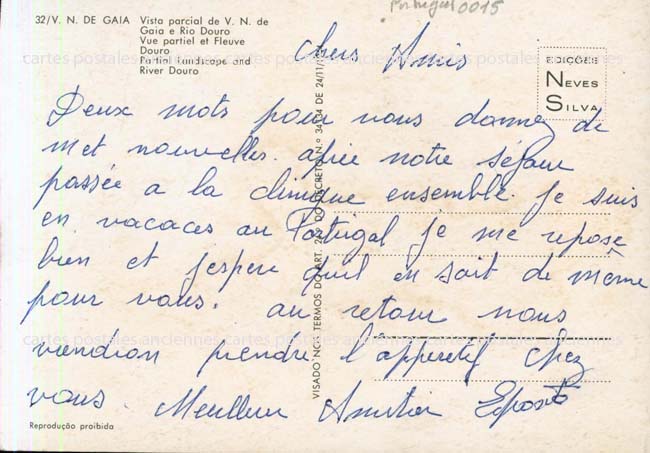 Portugal 0015
32/V. N. DE GAIA Vista parcial de V. N. de
Gaia e Rio Douro
Vue partiel et Fleuve
Douro
Partial Landscape and
River Douro
EDIÇÕES
NEVES
SILVA
Chers Amis
Deux mots pour vous donnez de
met nouvelles. aprèe notre séjour
passée a la clinique ensemble. Je suis
en vacaces au Portugal je me repose
bien et j'espere qu'il en soit de même
pour vous. au retour nous
viendron prendre l'apperetif chez
vous. Meulleur Amitier
VISADO NOS TERMOS DO ART. 249 DO DECRETO N.º 34134 DE 24/11/
cartes postales anciennes
Reprodução proibida